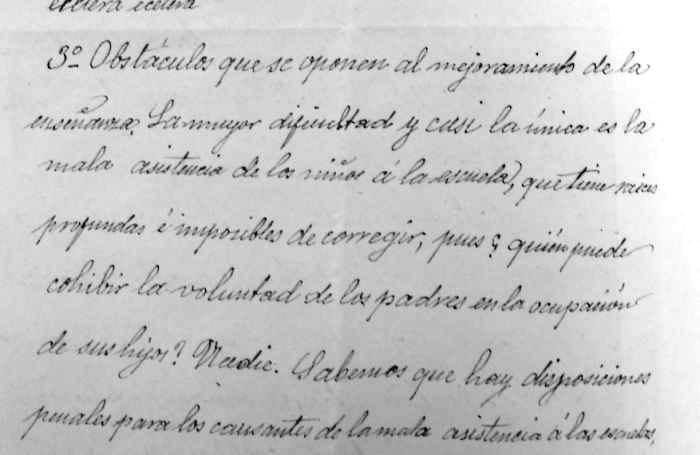 etcétera etcétera
3º Obstáculos que se oponen al mejoramiento de la
enseñanza. La mayor dificultad y casi la única es la
mala asistencia de los niños á la escuela, que tiene raices
profundas é imposibles de corregir, pues ¿quién puede
cohibir la voluntad de los padres en la ocupación
de sus hijos? Nadie. Sabemos que hay disposiciones
penales para los causantes de la mala asistencia á las escuelas,